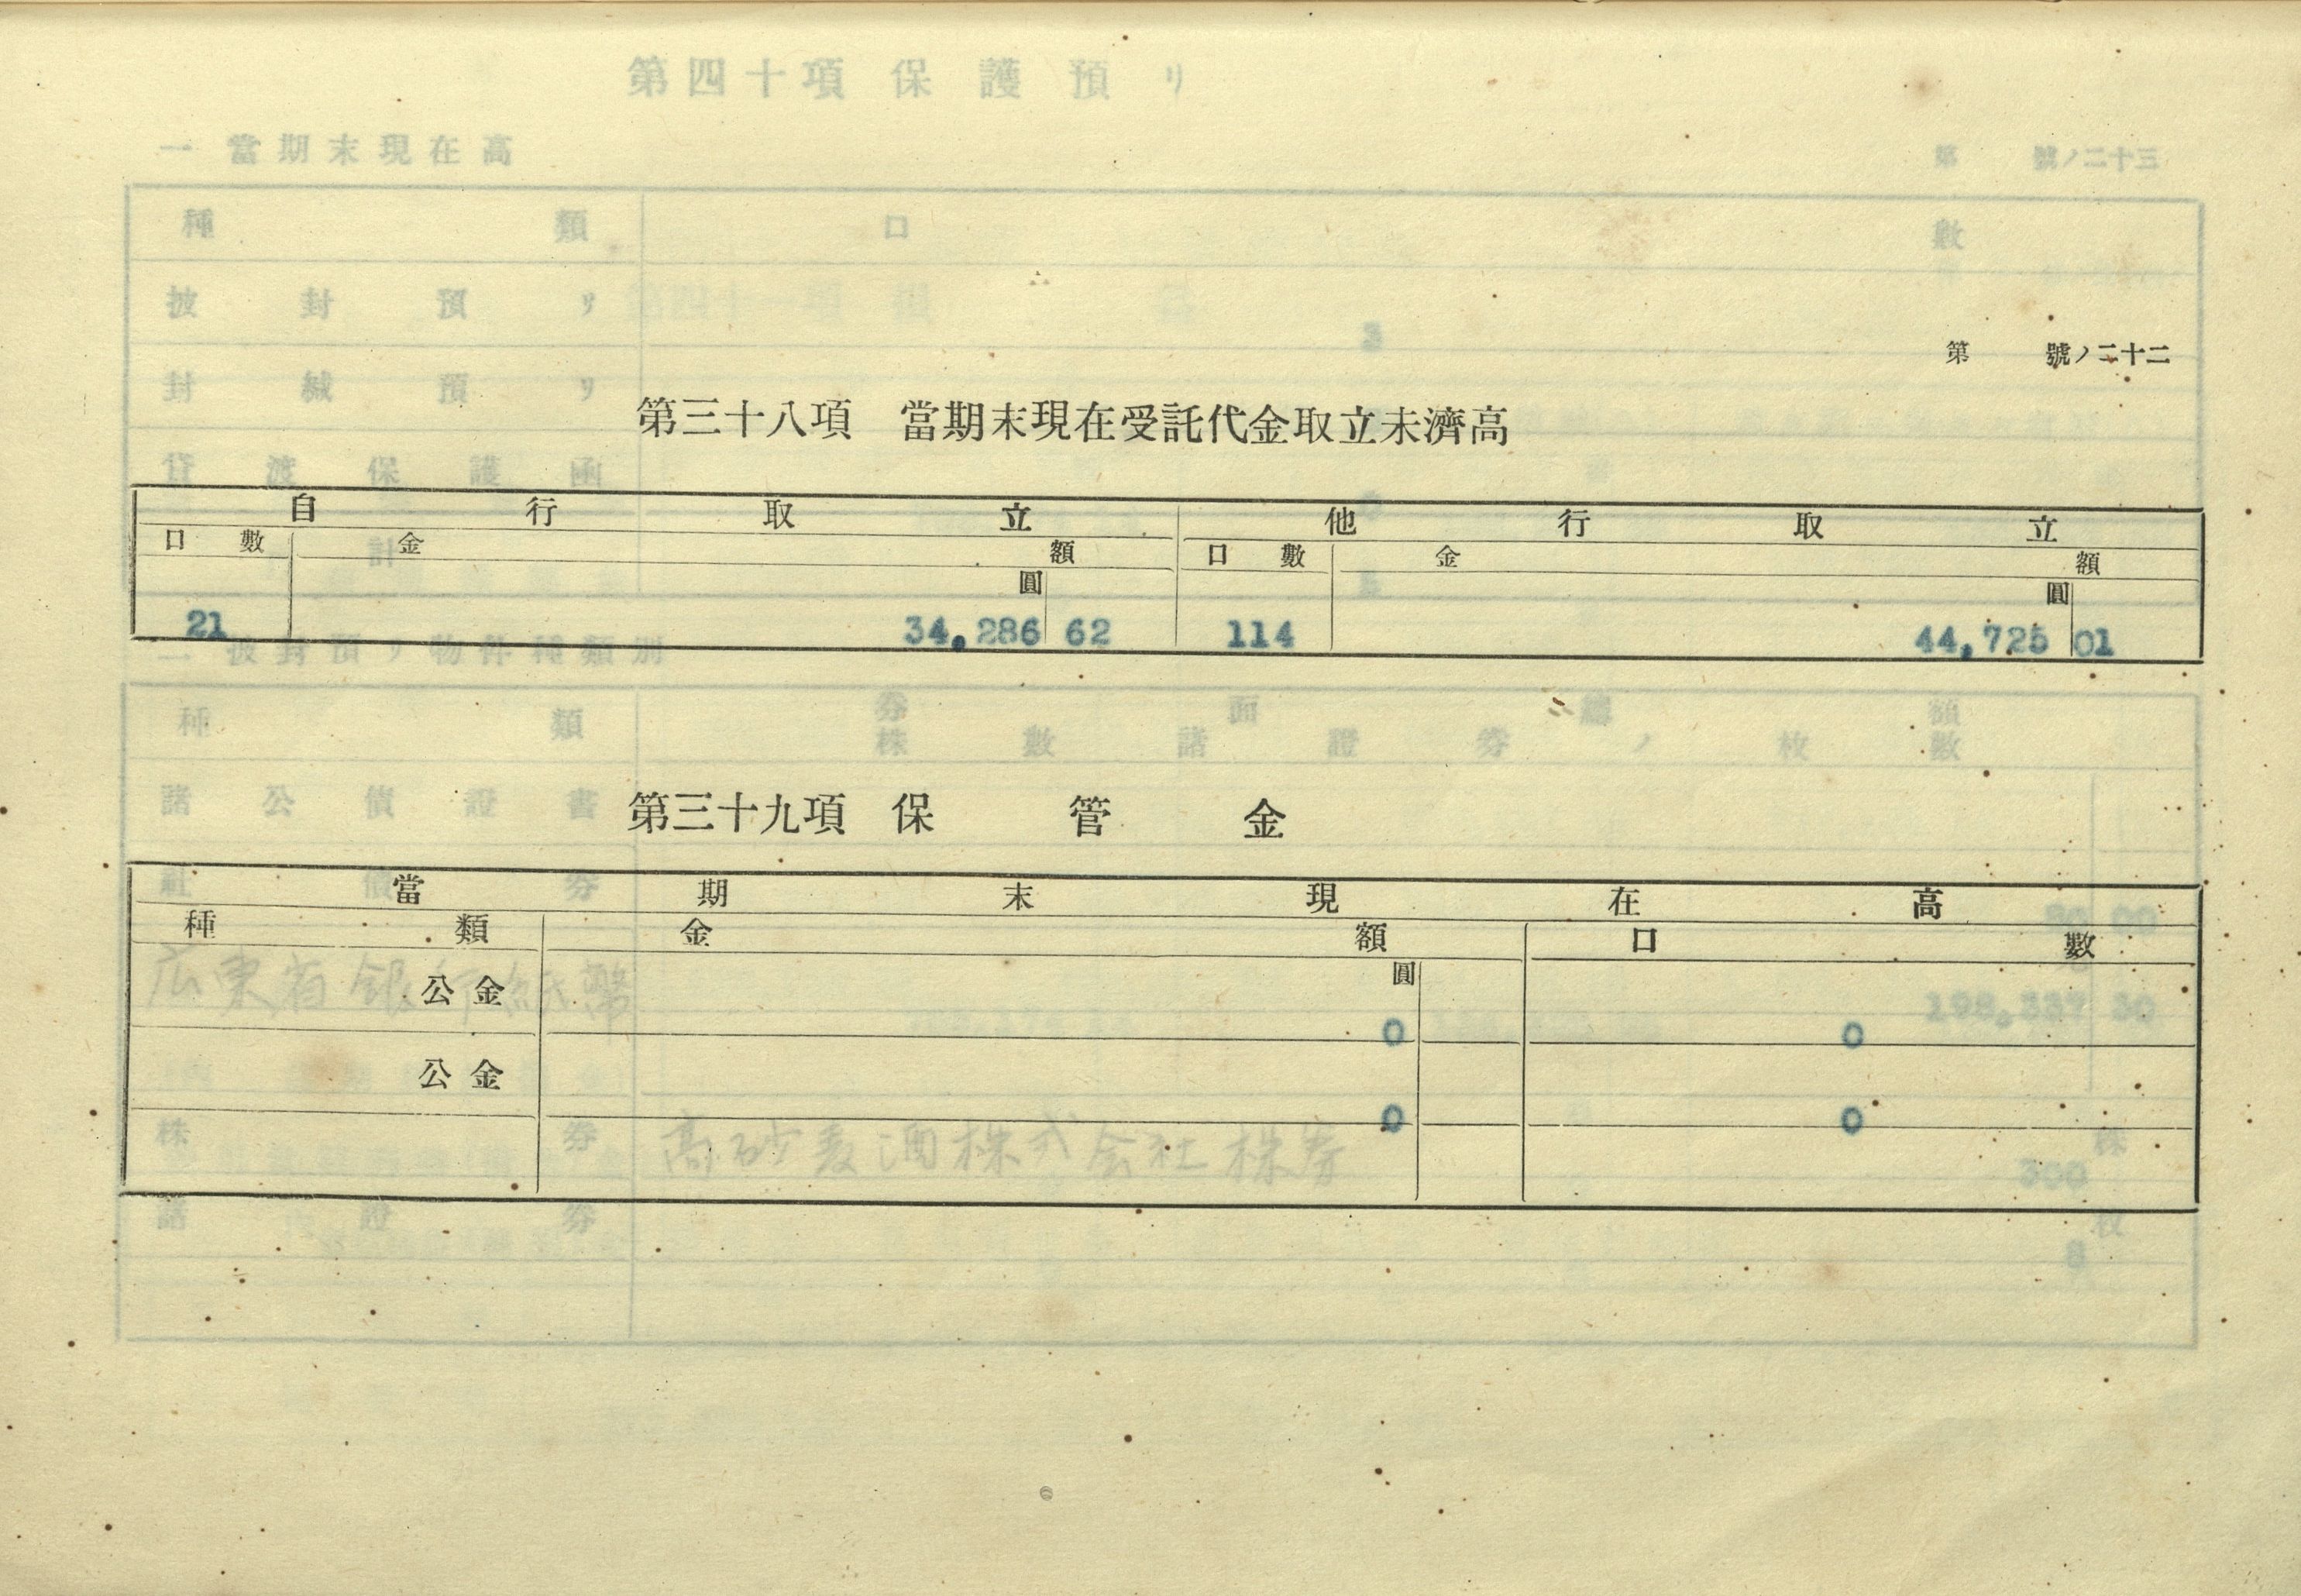 第四十項 保護預リ
一 當期末現在高
第 號ノ二十三
種類 口數
披封預リ 3
封緘預リ
貸渡保護函
計
第 號ノ二十二
第三十八項 當期末現在受託代金取立未濟高
自行取立 他行取立
口數 金額 口數 金額
圓 圓
21 34,286 62 114 44,725 01
二 披封預リ物件種類別
種類 券面總額
株數諸證券ノ枚數
諸公債證書
第三十九項 保管金
社債券 00
當期末現在高
種類 金額 口數
圓
公金 0 0
広東省銀行紙幣 198,337 30
公金 0 0
株券 高砂麦酒株式会社株券 株
300
諸證券 枚
8